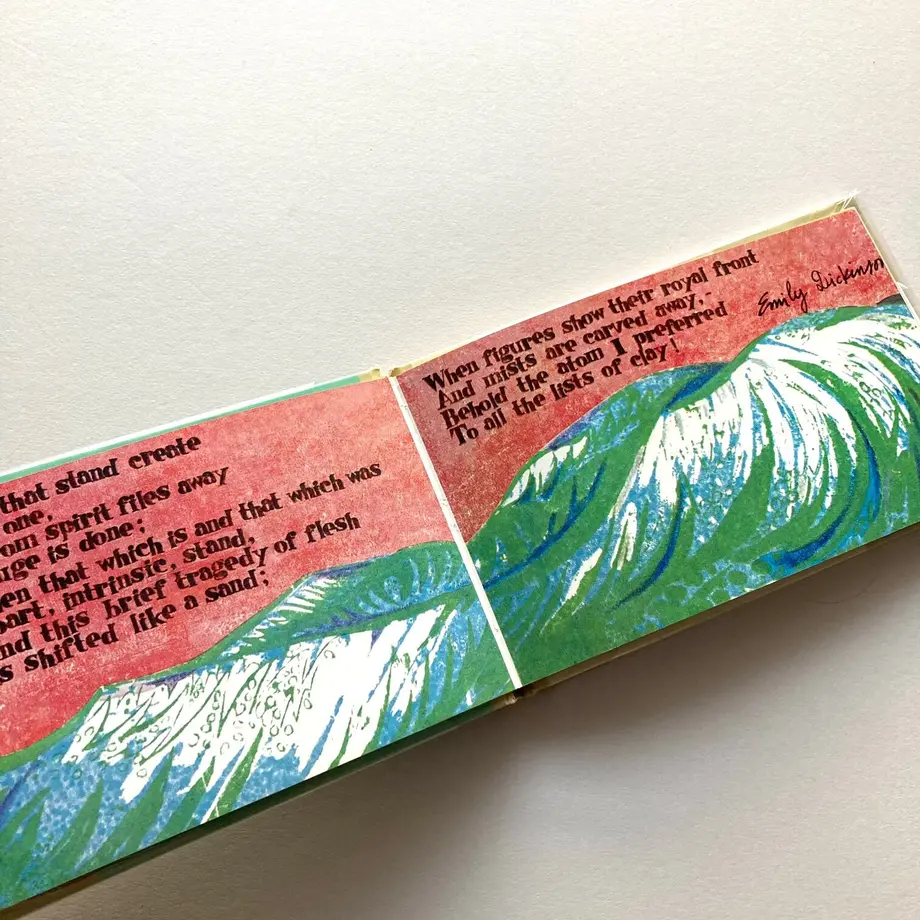 that stand create
one,
spirit flies away
is done;
that which is and that which was
intrinsic, stand,
this brief tragedy of flesh
shifted like a sand;
When figures show their royal front
And mists are carved away,-
Behold the atom I preferred
To all the lists of clay!
Emily Dickinson